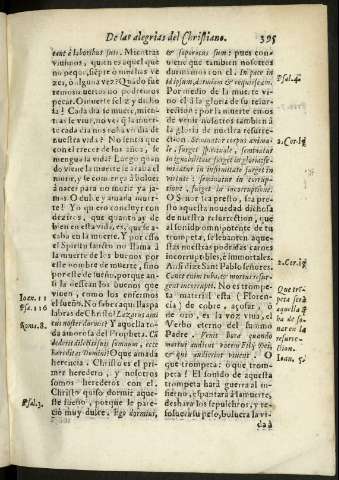 De las alegrias del Christiano. 395
tent à laboribus suis. Mientras
viuimos, quien es aquel que
no peque, siẽpre o muchas ve-
zes? Quando se va de aqui fue
remos nuevos no podremos
pecar. O muerte
ze? Cada dia se muere, miẽ
tras se viue, no ves q̃ la muer
te cada dia nos roba vn dia de
nuestra vida? No sientes que
con el crecer de los años, se
mengua la vida? Luego quan
do viene la muerte se acaba el
morir, y se comiẽça el Iustico
à nacer para no morir ya ja-
mas. O dulce y amada muer-
te! Yo quiero concluyr con
deziros, que quanto ay de
bien en esta vida, es, que se aca-
ba en la muerte. Y por esso
el Spiritu sancto no llama à
la muerte de los buenos por
nombre de muerte, sino por
este de sueño, porque an-
si la dessean los buenos que
viuen, como los enfermos
el sueño. No sabes aquellas pa
labras de Christo? Lazarus ami
cus noster dormit? Y aquella to-
da amorosa del Propheta. Cũ
dederit dilectis suis somnum, ecce
hereditas Domini? O que amada
herencia. Christo es el primer
heredero, y nosotros
somos herederos con el.
Christo quiso dormir aque-
ste sueño, porque le pare-
ciò muy dulce. Ego dormiui,
& soporatus sum: pues conu-
iene que tambien nosotros
durmamos con el. In pace in
id ipsum, dormiam & requiescam.
Por medio de la muerte vi-
no el à la gloria de su resurre-
cion: y por la muerte emos
de venir nosotros tambien à
la gloria de nuestra resurre-
ction. Seminatur corpus anima-
le, surget spirituale, seminatur
in ignobilitate surget in gloria: se-
minatur in infirmitate surget in
virtute: seminatur in corruptio-
ne, surget in incorruptione.
O Señor sea presto, sea pre-
sto aquella nouedad dichosa
de nuestra resurrection, que
al sonido omnipotente de tu
trompeta, se leuanten aque-
stas nuestras podridas carnes
incorruptibles, è immortales.
Ansi dize Sant Pablo señores.
Canet enim tuba, & mortui resur-
gent incorrupti. No es trompe-
ta material esta (Floren-
cia) de cobre, açofar, ò
de oro, es la voz viua, el
Verbo eterno del summo
Padre. Venit hora quando
mortui audient vocem Filij Dei,
& qui audierint viuent. O
que trompeta: ò que trompe
ta! El sonido de aquesta
trompeta harà guerra al in-
fierno, espantarà Hamuerte,
deshara los sepulchros, y re-
sossará su peso, boluera la vi-
Caa
Psal. 4.
2.Cor.15
2.Cor.15
Que trõ
peta serà
aquella q̃
ha de so-
nar en la
resurre-
ction.
Ioan. 5.
Ioan. 11
Psa. 126
Rom. 8.
Psal. 3.